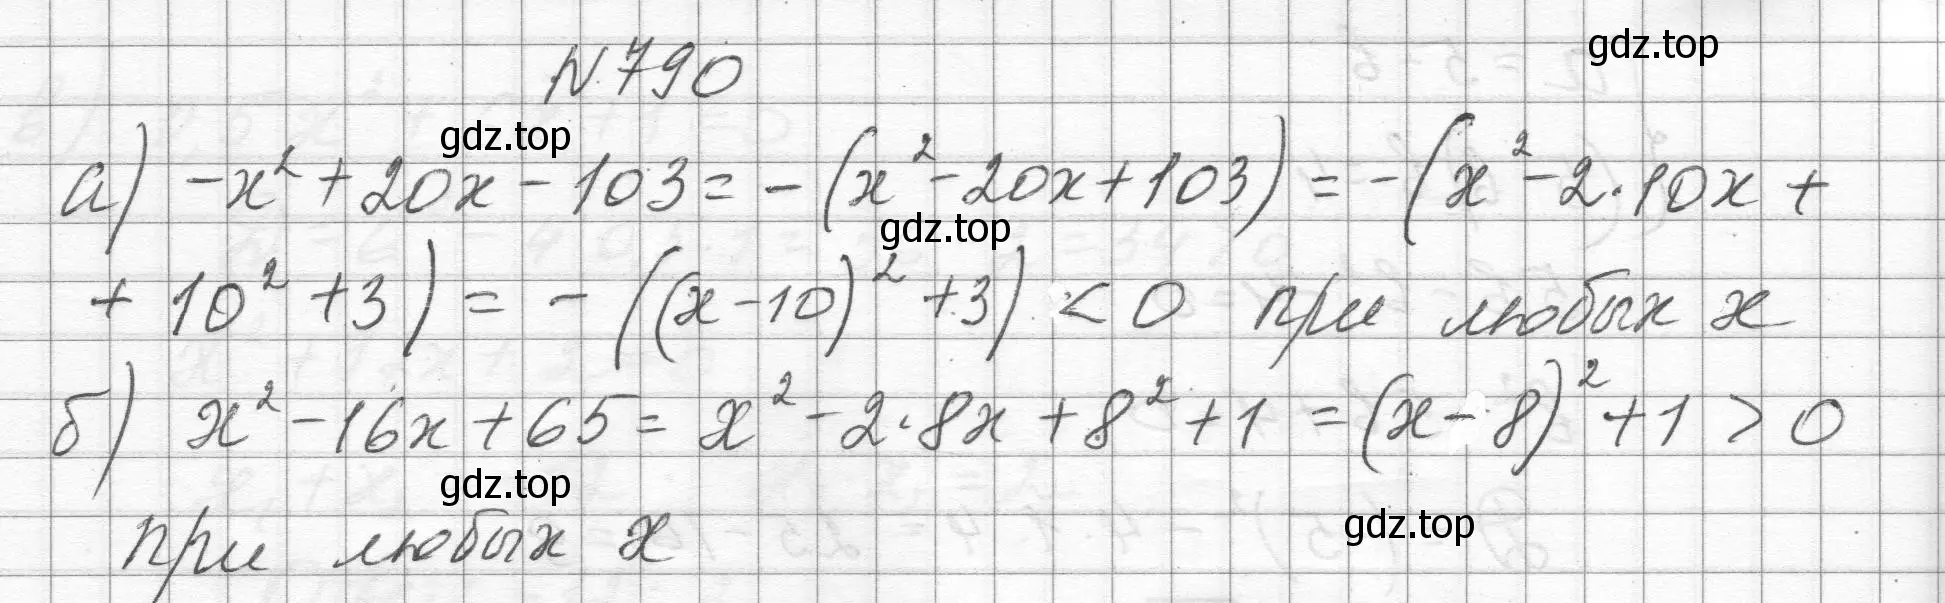 N 790
gdz.top
а) -x² + 20x - 103 = -(x² - 20x + 103) = -(x² - 2·10x +
gdz.top
+ 10² + 3) = -((x - 10)² + 3) < 0 при любых x
gdz.top
б) x² - 16x + 65 = x² - 2·8x + 8² + 1 = (x - 8)² + 1 > 0
gdz.top
при любых x
gdz.top